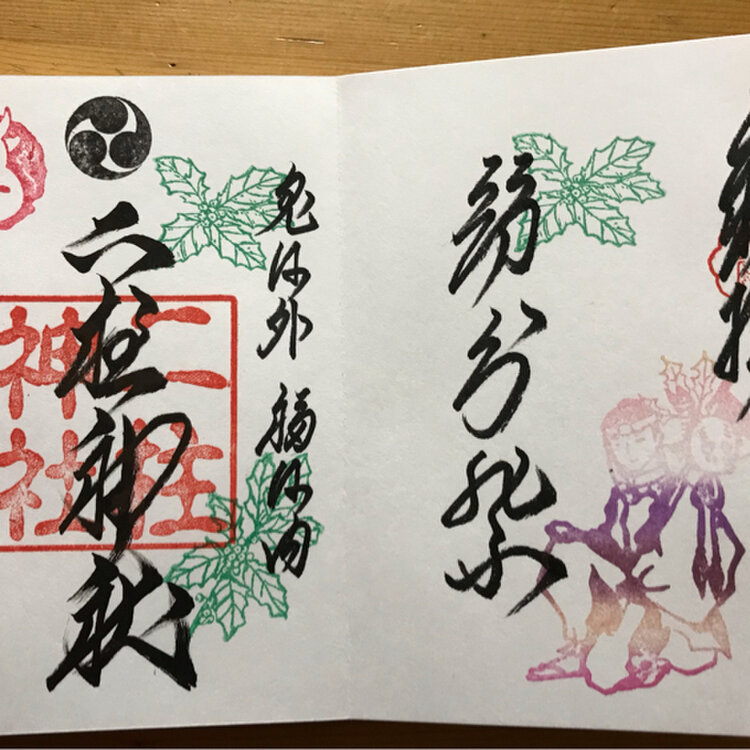 節分祭
鬼は外 福は内
二柱神社
二柱
神社